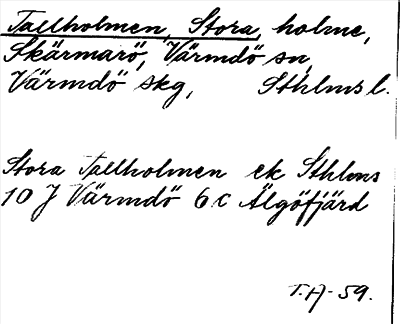 Tallholmen, Stora, holme,
Skärmarö, Värmdö sn,
Värmdö skg, Sthlms l.
Stora Tallholmen ek Sthlms
10 J Värmdö 6 c Älgöfjärd
T.A- 59.